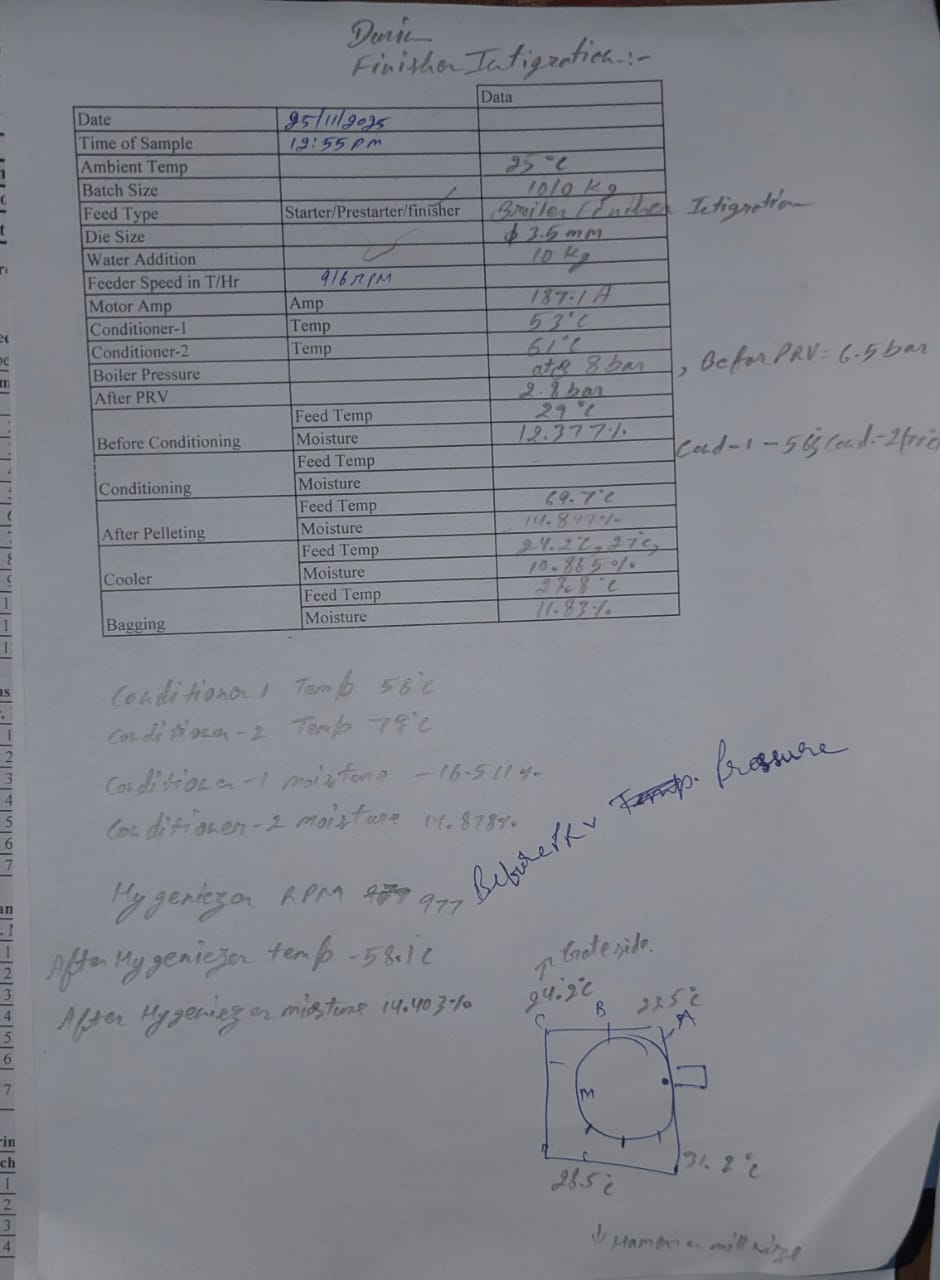 Finisher Intigration :-
Data
Date 25/11/2025
Time of Sample 12:55 PM
Ambient Temp 25 °C
Batch Size 1010 Kg
Feed Type Starter/Prestarter/finisher Broiler Finisher Intigration
Die Size ϕ 3.5 mm
Water Addition 10 Kg
Feeder Speed in T/Hr 916 RPM
Motor Amp Amp 187.1 A
Conditioner-1 Temp 53°C
Conditioner-2 Temp 61°C
Boiler Pressure 8 bar, Befor PRV = 6.5 bar
After PRV 2.8 bar
Before Conditioning Feed Temp 29 °C
Moisture 12.377%
Conditioning Feed Temp
Moisture
After Pelleting Feed Temp 69.7°C
Moisture 14.847%
Cooler Feed Temp 24.2°C, 27°C,
Moisture 10.865%
Bagging Feed Temp 27.8 °C
Moisture 11.83%
Conditioner 1 Temp 56°C
Conditioner-2 Temp 79°C
Conditioner-1 moisture -16.511%
Conditioner-2 moisture 14.878%
Before PRV Pressure
Hygeniezer RPM 977
After Hygeniezer temp -58.1°C
After Hygeniezer moisture 14.403%
24.2°C
C B 27.5°C
A
M
31.2°C
28.5°C
↓ Hammer mill